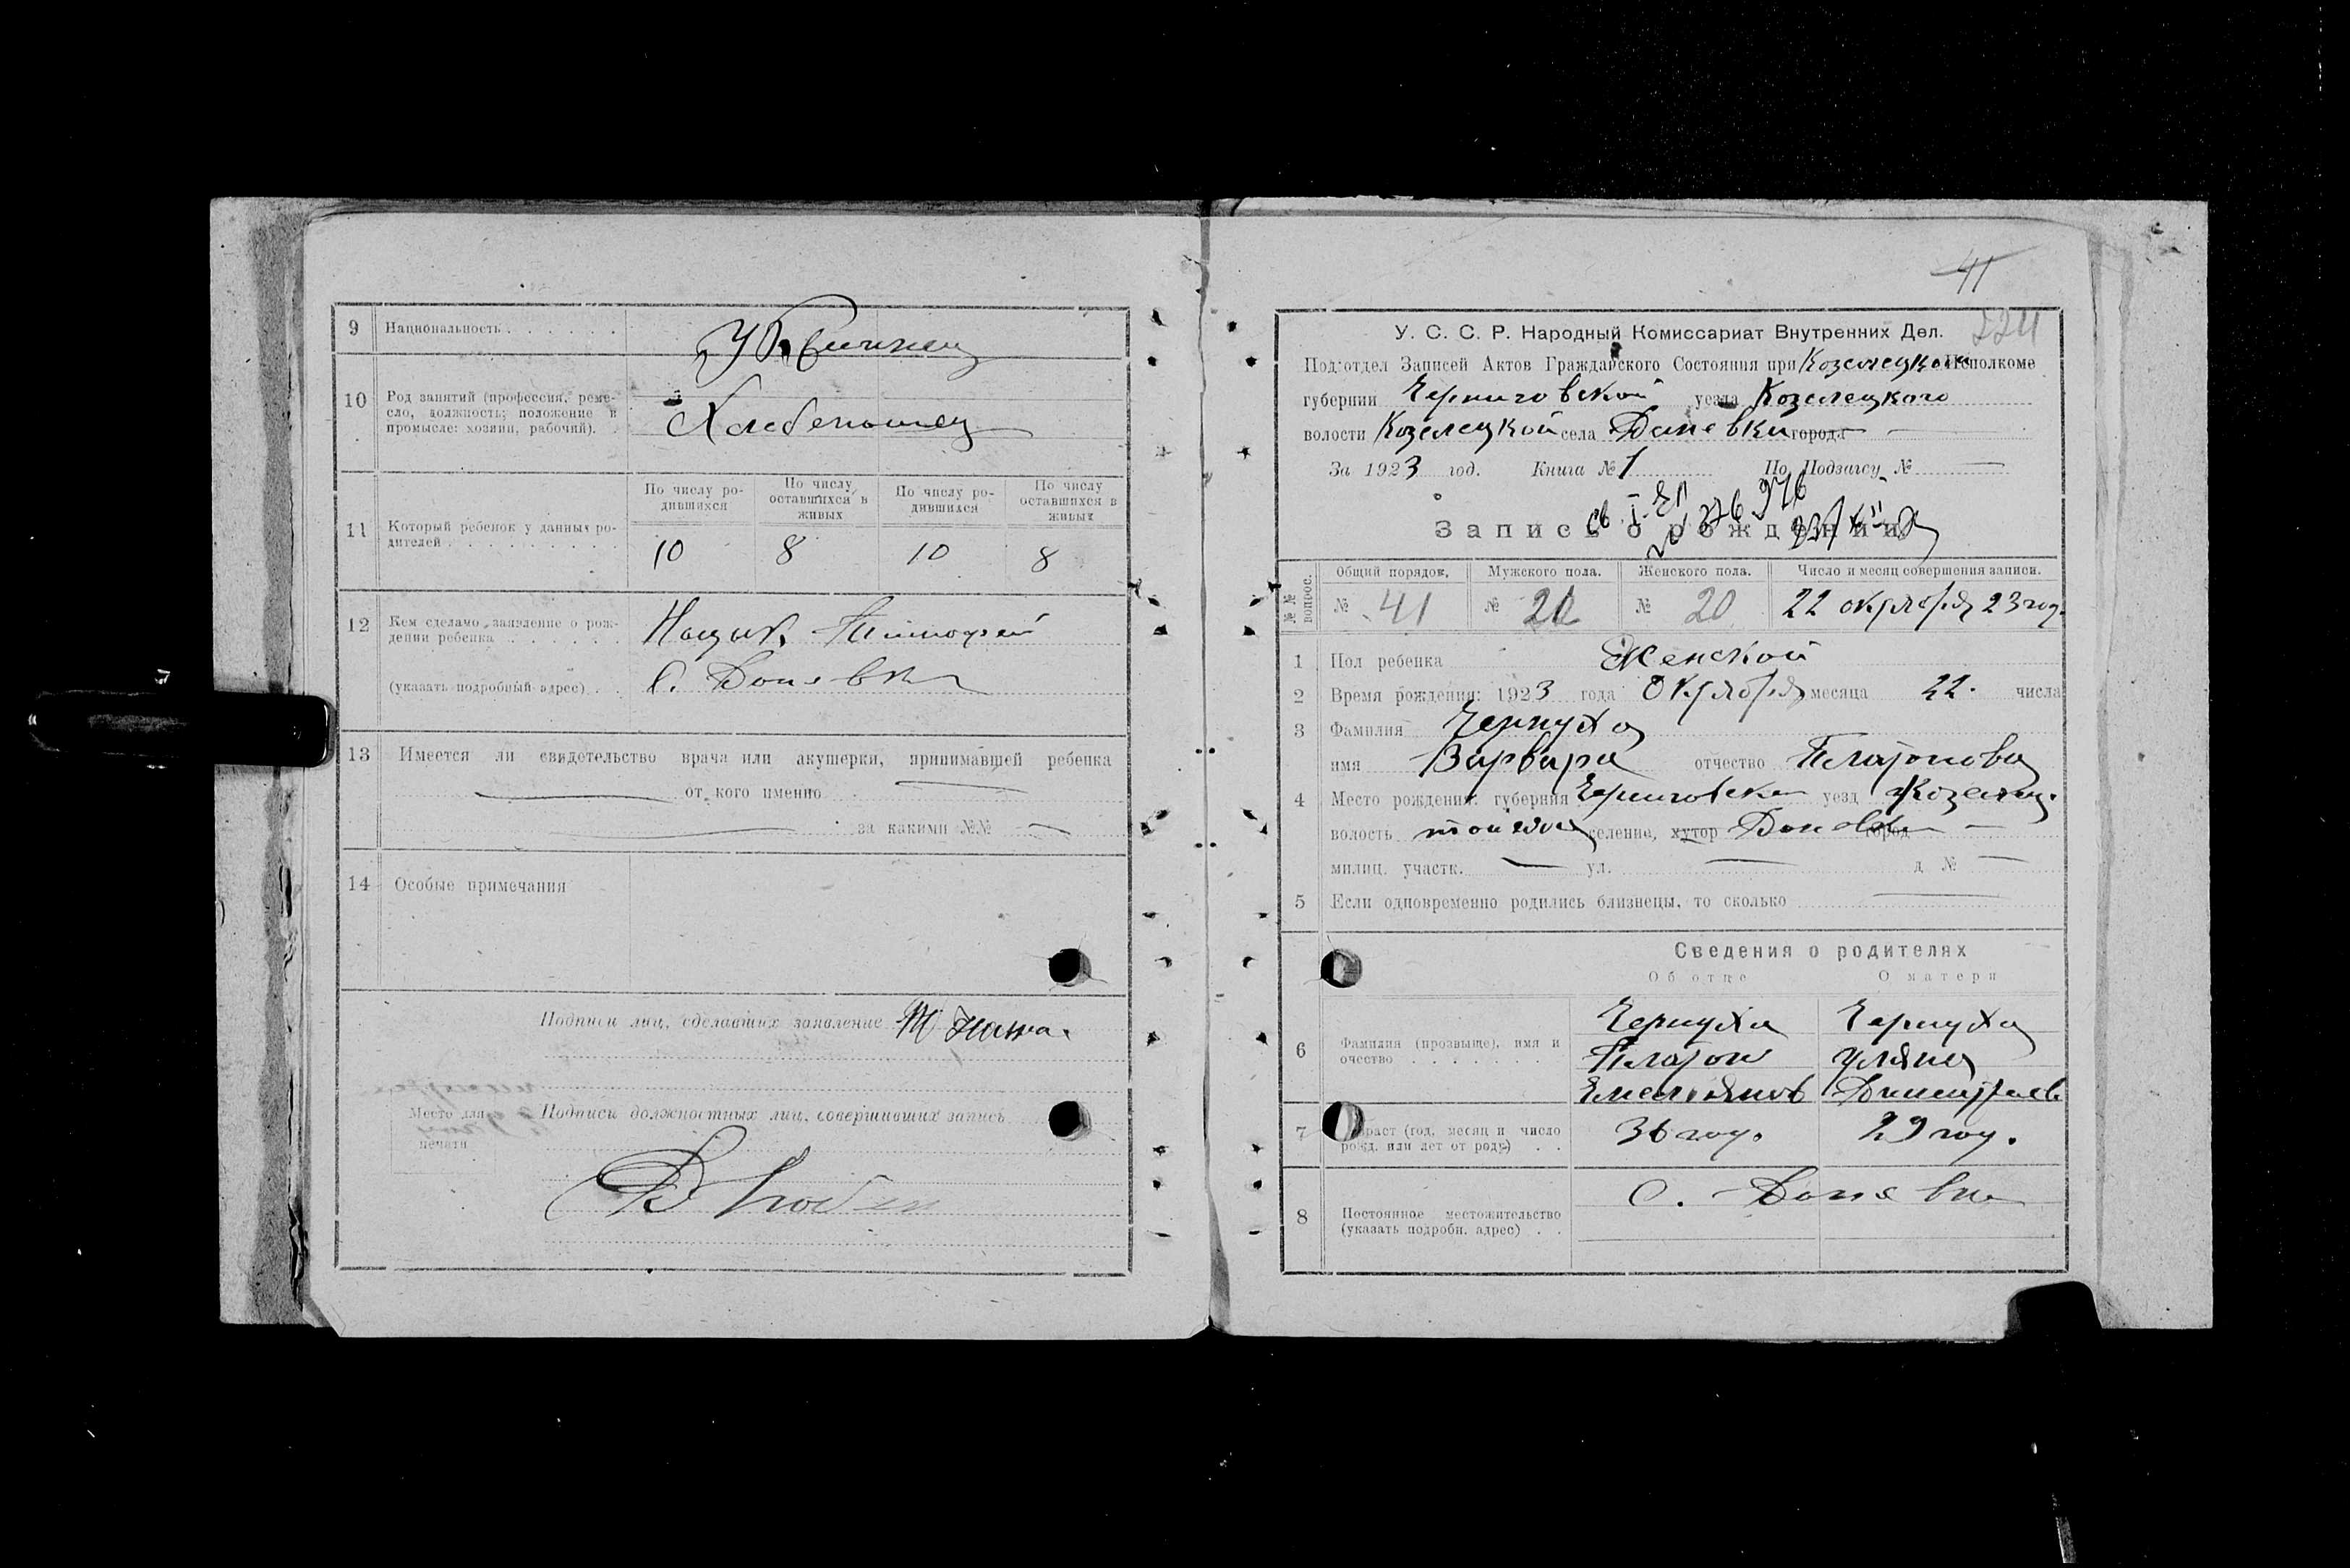 9 Национальность . . . . . . Украинец
10 Род занятий (профессия, реме-
сло, должность; положение в
промысле: хозяин, рабочий). Хлебопашец
11 Который ребенок у данных ро-
дителей . . . . . . . . .
По числу ро-
дившихся
По числу
оставшихся в
живых
По числу ро-
дившихся
По числу
оставшихся в
живых
10 8 10 8
12 Кем сделано заявление о рож-
дении ребенка . . . . . . Тимофей
(указать подробный адрес) . . С. Даневка
13 Имеется ли свидетельство врача или акушерки, принимавшей ребенка
от кого именно
за какими №№ —
14 Особые примечания
Подписи лиц, сделавших заявление
Место для
печати
Подписи должностных лиц, совершивших запись
41
У. С. С. Р. Народный Комиссариат Внутренних Дел.
Подотдел Записей Актов Гражданского Состояния при Козелецком Исполкоме
губернии Черниговской уезда Козелецкого
волости Козелецкой села Даневки города —
За 1923 год. Книга № 1 По Подзагсу № —
Запись о рождении
№№ вопрос.
Общий порядок, Мужского пола. Женского пола. Число и месяц совершения записи.
№ 41 № № 20 22 октября 23 год.
1 Пол ребенка Женской
2 Время рождения: 1923 года Октября месяца 22. числа
3 Фамилия Чернуха
имя Варвара отчество Платонова
4 Место рождения: губерния Черниговска уезд Козелец.
волость тоежа селение, хутор Даневка город —
милиц. участк. — ул. — д № —
5 Если одновременно родились близнецы, то сколько —
Сведения о родителях
Об отце О матери
6 Фамилия (прозвыще), имя и
очество . . . . . . .
Чернуха Чернуха
Платон Уляна
Емельянов Дмитриев
7 Возраст (год, месяц и число
рожд. или лет от роду) . .
36 год. 29 год.
8 Постоянное местожительство
(указать подробн. адрес) . .
С. Даневка